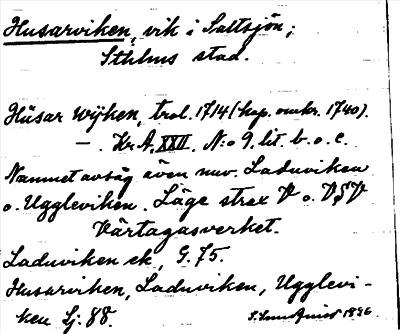 Husarviken, vik i Saltsjön;
Sthlms stad.
Hüsar Wijken, trol. 1714 (kop. omkr. 1740).
— . Kr A, XXII. N:o 9 lit. b. o. c.
Namnet avsåg även nuv. Laduviken
o. Uggleviken. Läge strax V o. VSV
Värtagasverket.
Laduviken ek, G. 75.
Husarviken, Laduviken, Ugglevi-
ken Sj: 88.
1896